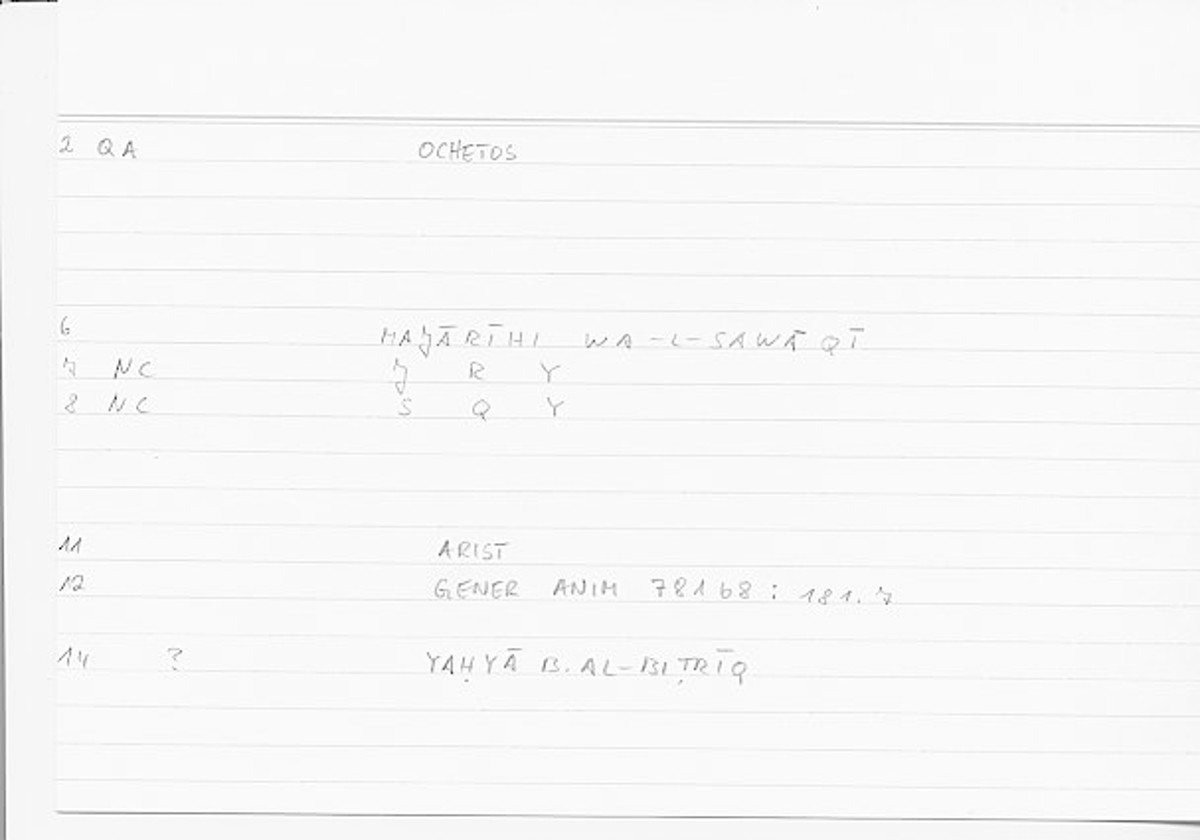 2 QA OCHETOS
6 MAJĀRĪHI WA-L-SAWĀQĪ
7 NC J R Y
8 NC S Q Y
11 ARIST
12 GENER ANIM 781b8 : 181.7
14 ? YAḤYĀ B. AL-BIṬRĪQ